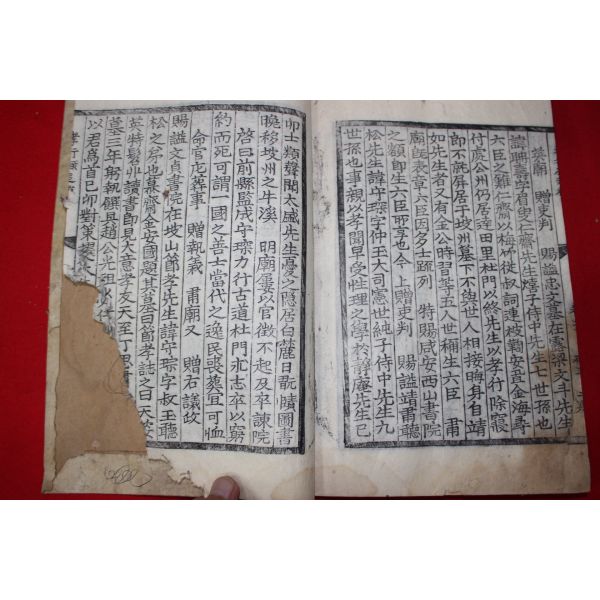 英廟 贈吏判 賜謚忠文墓在雲梁文斗先生
諱聃壽字耆叟仁齋先生熺子侍中先生七世孫也
六臣之難仁齋以梅竹從叔詞連被鞫安置金海尋
付處公州仍居該田里杜門以終先生以孝行除寢
郎不就屏居于坡州墓下不與世人相接晦身自靖
如先生者又有金公時習等五人世稱生六臣 肅
廟朝表章六臣因多士疏列 特賜咸安西山書院
之額卽生六臣所享也今上贈吏判 賜謚靖肅聽
松先生諱守琛字仲玉大司憲世純子侍中先生九
世孫也事親以孝聞早受性理之學於靜庵先生已
卯士類聲聞太盛先生憂之隱居白麓日翫賾圖書
晚移坡州之牛溪 明廟屢以官徵不起及卒諫院
啓曰前縣監成守琛力行古道杜門求志卒以窮
約而死可謂一國之善士當代之逸民喪葬宜可恤
命官庀葬事 贈執義 肅廟又 贈右議政
賜謚文貞書院在坡山節孝先生諱守琮字叔玉聽
松之弟也慕齋金安國題其墓曰節孝誌之曰天姿
英特髫丱讀書即見大意孝友天至丁憂
墓三年躬執饌具趙公光祖以
以君爲首己卯對策